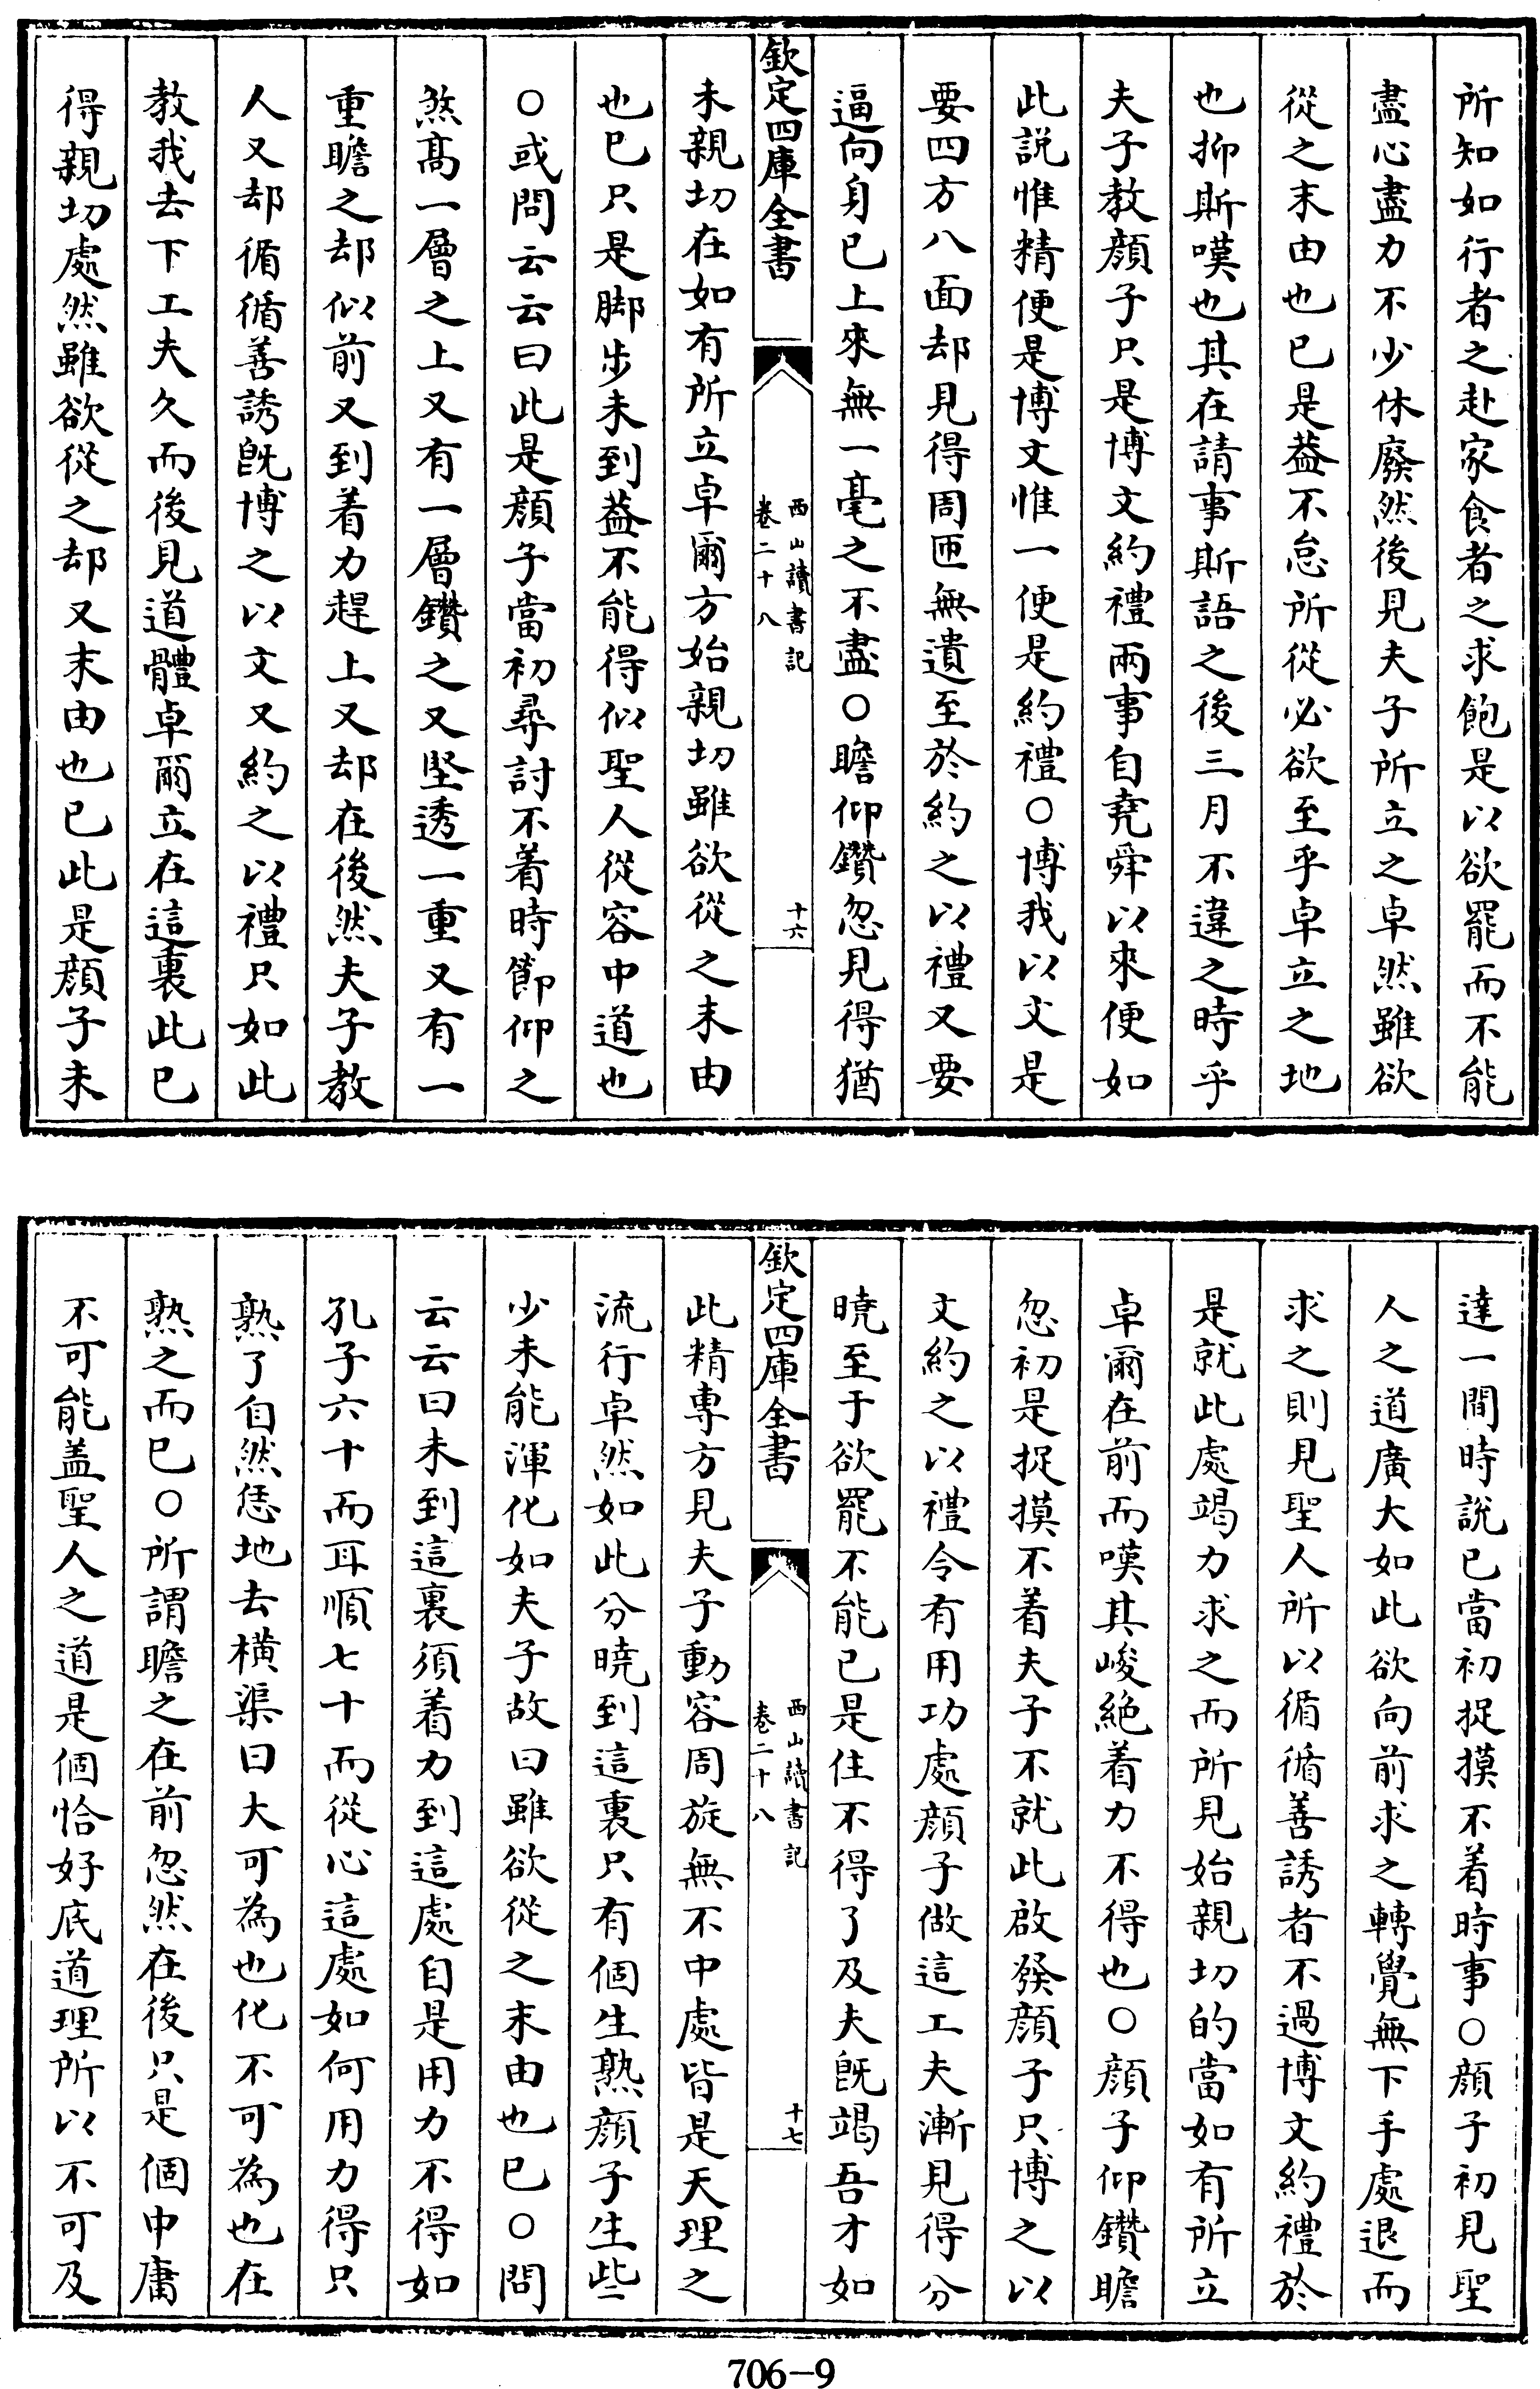 所知如行者之赴家食者之求飽是以欲罷而不能
盡心盡力不少休廢然後見夫子所立之卓然雖欲
從之末由也已是葢不怠所從必欲至乎卓立之地
也抑斯嘆也其在請事斯語之後三月不違之時乎
夫子教顔子只是博文約禮兩事自堯舜以來便如
此説惟精便是博文惟一便是約禮○博我以文是
要四方八面却見得周匝無遺至於約之以禮又要
逼向身已上來無一毫之不盡○瞻仰鑽忽見得猶
欽定四庫全書
西山讀書記
卷二十八
十六
未親切在如有所立卓爾方始親切雖欲從之末由
也已只是脚步未到葢不能得似聖人從容中道也
○或問云云曰此是顔子當初尋討不着時節仰之
煞髙一層之上又有一層鑽之又堅透一重又有一
重瞻之却似前又到着力趕上又却在後然夫子教
人又却循循善誘旣博之以文又約之以禮只如此
教我去下工夫久而後見道體卓爾立在這裏此已
得親切處然雖欲從之却又末由也已此是顔子未
達一間時說已當初捉摸不着時事○顔子初見聖
人之道廣大如此欲向前求之轉覺無下手處退而
求之則見聖人所以循循善誘者不過博文約禮於
是就此處竭力求之而所見始親切的當如有所立
卓爾在前而嘆其峻絶着力不得也○顔子仰鑽瞻
忽初是捉摸不着夫子不就此啟發顔子只博之以
文約之以禮令有用功處顔子做這工夫漸見得分
曉至于欲罷不能已是住不得了及夫旣竭吾才如
欽定四庫全書
西山讀書記
卷二十八
十七
此精專方見夫子動容周旋無不中處皆是天理之
流行卓然如此分曉到這裏只有個生熟顔子生些
少未能渾化如夫子故曰雖欲從之末由也已○問
云云曰未到這裏須着力到這處自是用力不得如
孔子六十而耳順七十而從心這處如何用力得只
熟了自然恁地去橫渠曰大可為也化不可為也在
熟之而已○所謂瞻之在前忽然在後只是個中庸
不可能盖聖人之道是個恰好底道理所以不可及
706-9